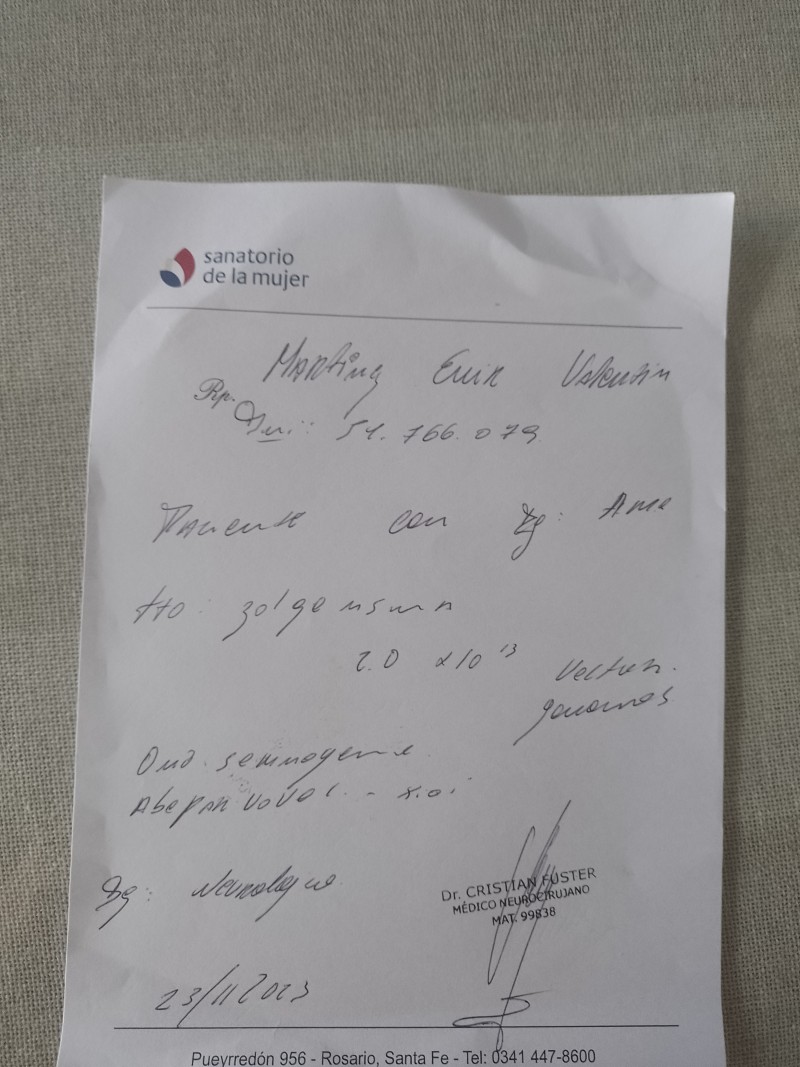 sanatorio
de la mujer
Martinez Erik Valentin
Rp.
Dni: 54.766.079
Paciente con Dg: Ame
tto: zolgensma
2.0 x10¹³ Vectores
genomas
Ona semnogene
Abeparvovec - xioi
Dg: Neurologico
Dr. CRISTIAN FÚSTER
MÉDICO NEUROCIRUJANO
MAT. 99838
23/11/2023
Pueyrredón 956 - Rosario, Santa Fe - Tel: 0341 447-8600